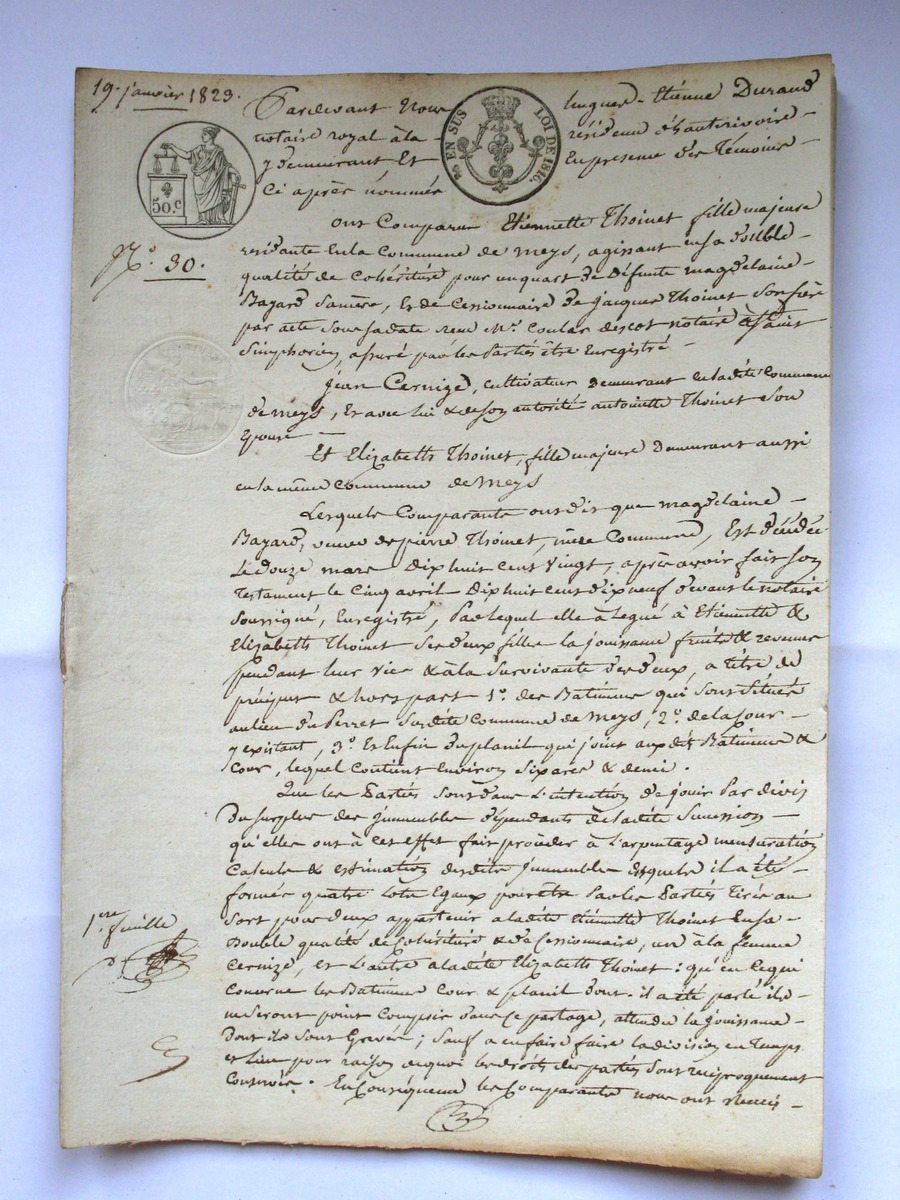 19. janvier 1823.
Pardevant Nous hugues - Etienne Durand
notaire royal à la - résidence d'hauterivoire -
y demeurant Et En presence des Témoins -
Ci après nommés
EN SUS LOI DE 1816.
50.c
N.o 30.
ont Comparu Etiennette Thoinet fille majeure
residante en la Commune de Meys, agissant en sa double
qualité de Cohéritière pour un quart de défunte magdelaine
Bayard Sa mère, et de Cessionnaire de jacques Thoinet Son frère
par acte Sous sa date reçu M.e notaire à Saint
Simphorien, assuré par les Parties être Enregistré -
Jean Cernize, cultivateur demeurant en ladite Commune
de Meys, et avec lui & de son autorité antoinette Thoinet Son
Epouse -
Et Elizabeth Thoinet, fille majeure Demeurant aussi
en la même Commune de Meys
Lesquels Comparants ont dit que magdelaine -
Bayard, veuve de pierre Thoinet, mère Commune, Est décédée
Le douze mars Dix huit cent vingt, après avoir fait son
Testament le Cinq avril Dix huit cent dix neuf devant le notaire
Soussigné, Enregistré, Par lequel elle à Legué à Etiennette &
Elizabeth Thoinet Ses deux filles la jouissance fruits & revenus
pendant leur vie & à la Survivante des deux, a titre de
préciput & hors part 1.o des Batimens qui Sont Situés
au lieu du Perret Susdite Commune de Meys, 2.o de la Cour -
y existant, 3.o Et Enfin du planil qui joint aux dits Batimens &
Cour, lequel Contient Environ Six ares & demi.
Que les Parties Sont dans L'intention de jouir Par divis
du Surplus des jmmeubles dépendants de ladite Succession -
qu'elles ont à cet effet fait procéder à L'arpentage mensuration
Calcule & estimation desdits Jmmeubles Esquels il a été
formé quatre Lots Egaux pour être Par les Parties Tirés au
Sort pour deux appartenir a ladite Etiennette Thoinet En sa -
Double qualité de Cohéritière & de Cessionnaire, un à la femme
Cernize, et L'autre a ladite Elizabeth Thoinet : qu'en Ce qui
Concerne les Batimens Cour & planil dont il a été parlé ils -
ne Seront point Compris dans Ce partage, attendu la jouissance -
dont ils Sont Gravés ; Sauf a en faire faire la division en Temps
et Lieu pour raison de quoi les droits des parties Sont réciproquement
Conservés. En Conséquence les Comparants nous ont
1.ere feuille